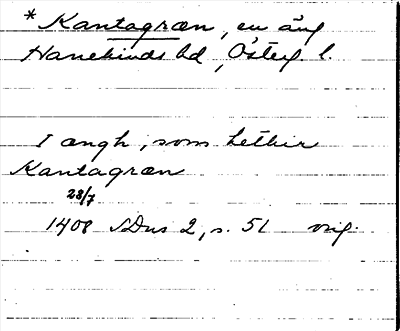 * Kantagræn, en äng
Hanekinds hd, Österg. l.
I ængh, som hethir
Kantagræn
28/7
1408 SDns 2, s. 51 orig.